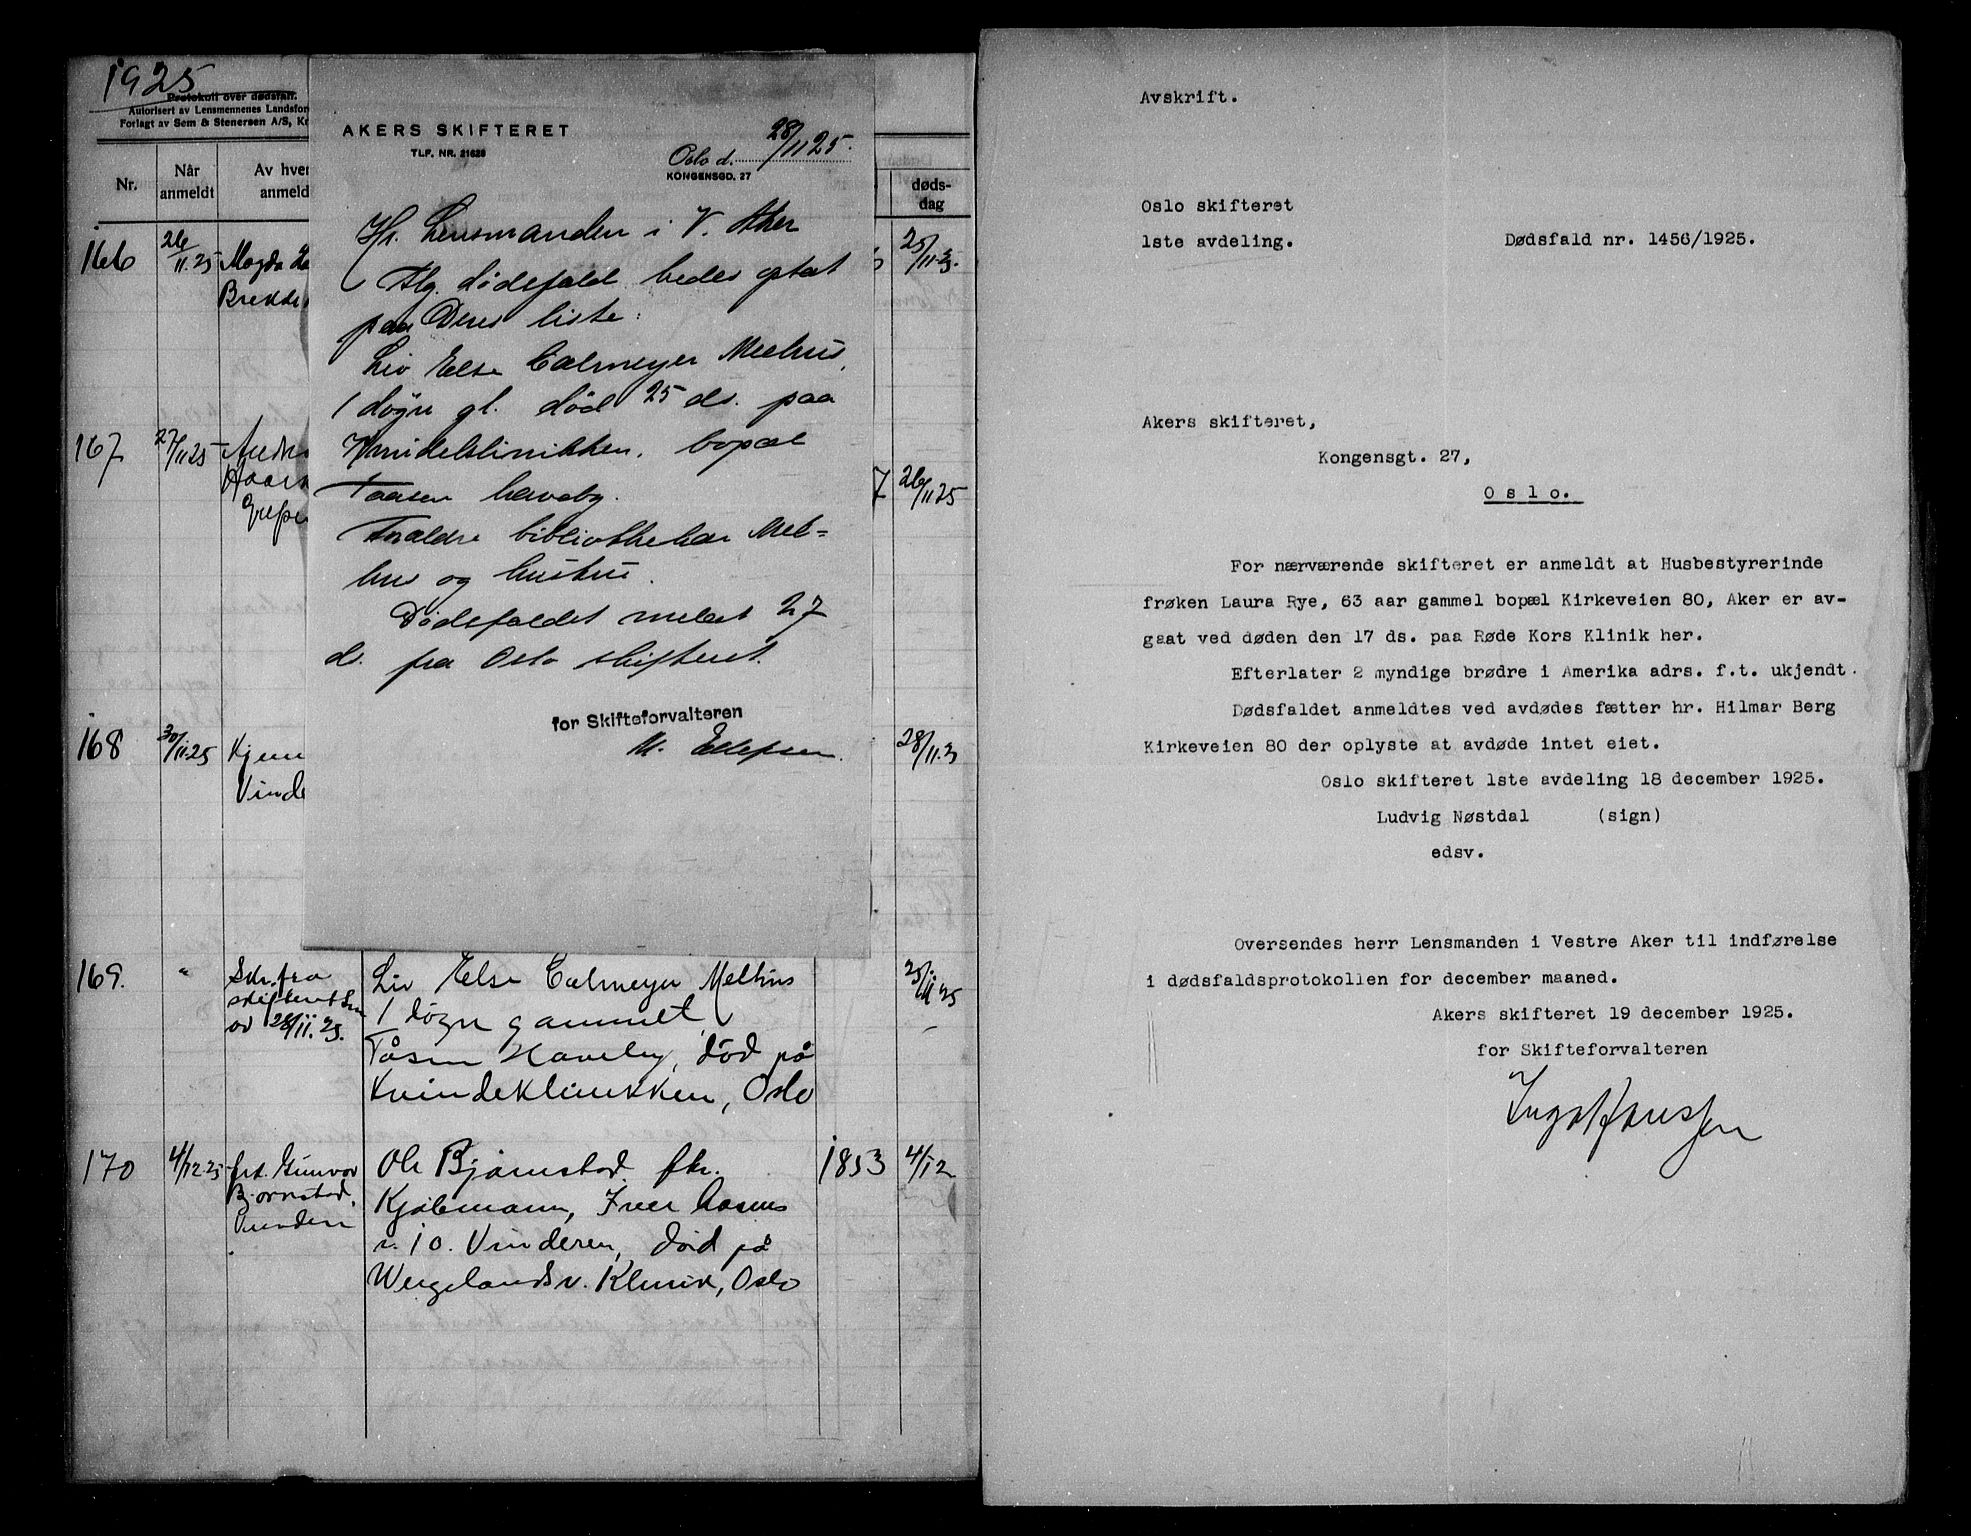 1925
Protokoll over dødsfall.
Autorisert av Lensmennenes Landsfor
Forlagt av Sem & Stenersen A/S, Kr
Nr.
Når anmeldt
Av hver anmeld
døds-
dag
166
26/11.25
Magda
Brekke
25/11.25.
167
27/11 25
26/11 25
168
30/11.25
Vinde
28/11.25
AKERS SKIFTERET
TLF. NR. 21628
Oslo d. 28/11 25.
KONGENSGD. 27
Hr. Lensmanden i V. Aker
Flg. dødsfald bedes optat
paa Deres liste:
Liv Else Calmeyer Melhus,
1 døgn gl. død 25 ds. paa
Kvindeklinikken, bopæl
Taasen haveby.
Forældre bibliothekar Mel=
hus og hustru.
Dødsfaldet meldt 27
ds. fra Oslo skifteret.
for Skifteforvalteren
M. Ellefsen.
169.
"
Skr. fra
skifteret
av 28/11.25.
Liv Else Calmeyer Melhus
1 døgn gammel,
Tåsen Haveby, død på
Kvindeklinikken, Oslo
25/11 25
170
4/12.25
frk. Gunvor
Bjørnstad,
Vinderen
Ole Bjørnstad, fhv.
Kjøbmann, Iver Aasens
v. 10. Vinderen, død på
Wergelandsv. Klinik, Oslo
1853
4/12
Avskrift.
Oslo skifteret
1ste avdeling.
Dødsfald nr. 1456/1925.
Akers skifteret,
Kongensgt. 27,
Oslo.
For nærværende skifteret er anmeldt at Husbestyrerinde
frøken Laura Rye, 63 aar gammel bopæl Kirkeveien 80, Aker er av-
gaat ved døden den 17 ds. paa Røde Kors Klinik her.
Efterlater 2 myndige brødre i Amerika adrs. f.t. ukjendt.
Dødsfaldet anmeldtes ved avdødes fætter hr. Hilmar Berg
Kirkeveien 80 der oplyste at avdøde intet eiet.
Oslo skifteret 1ste avdeling 18 december 1925.
Ludvig Nøstdal (sign)
edsv.
Oversendes herr Lensmanden i Vestre Aker til indførelse
i dødsfaldsprotokollen for december maaned.
Akers skifteret 19 december 1925.
for Skifteforvalteren
Inga Hanssen